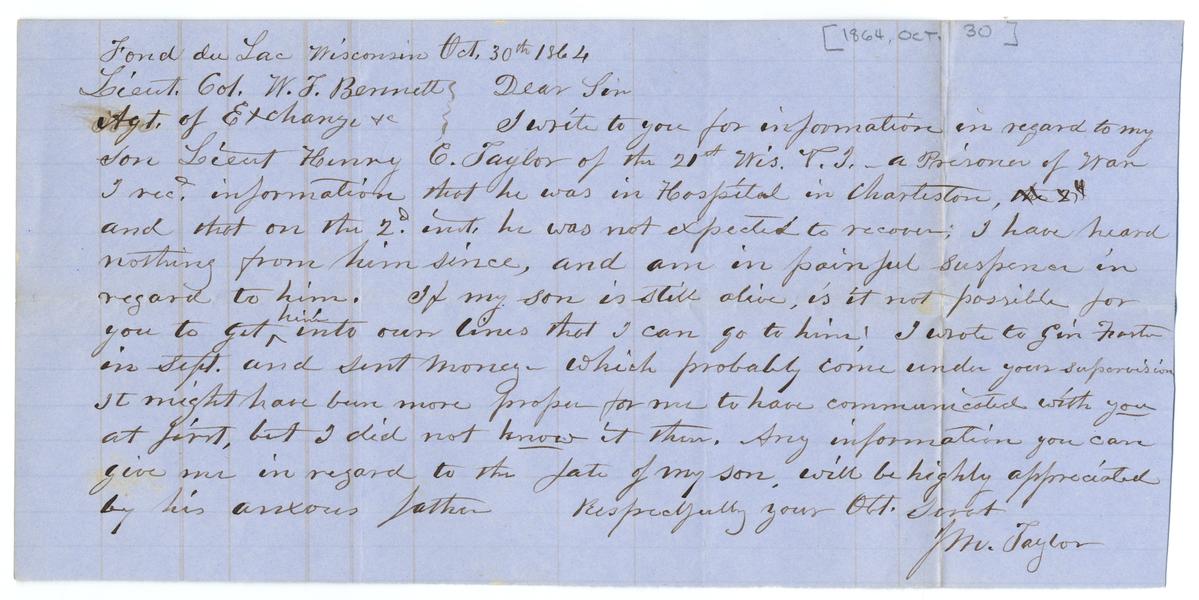 [1864, OCT. 30]
Fond du Lac Wisconsin Oct. 30th 1864
Lieut. Col. W. T. Bennett } Dear Sir
Agt. of Exchange &c } I write to you for information in regard to my
Son Lieut Henry C. Taylor of the 21st Wis. V. I. - a Prisoner of War
I recd. information that he was in Hospital in Charleston,
and that on the 2d. inst. he was not expected to recover; I have heard
nothing from him since, and am in painful suspence in
regard to him. If my son is still alive, is it not possible for
you to get him into our lines that I can go to him! I wrote to Gen Foster
in Sept. and sent money - which probably come under your supervision
It might have been more proper for me to have communicated with you
at first, but I did not know it then. Any information you can
give me in regard to the fate of my son, will be highly appreciated
by his anxous father Respectfully your Obt. Servt
J M. Taylor